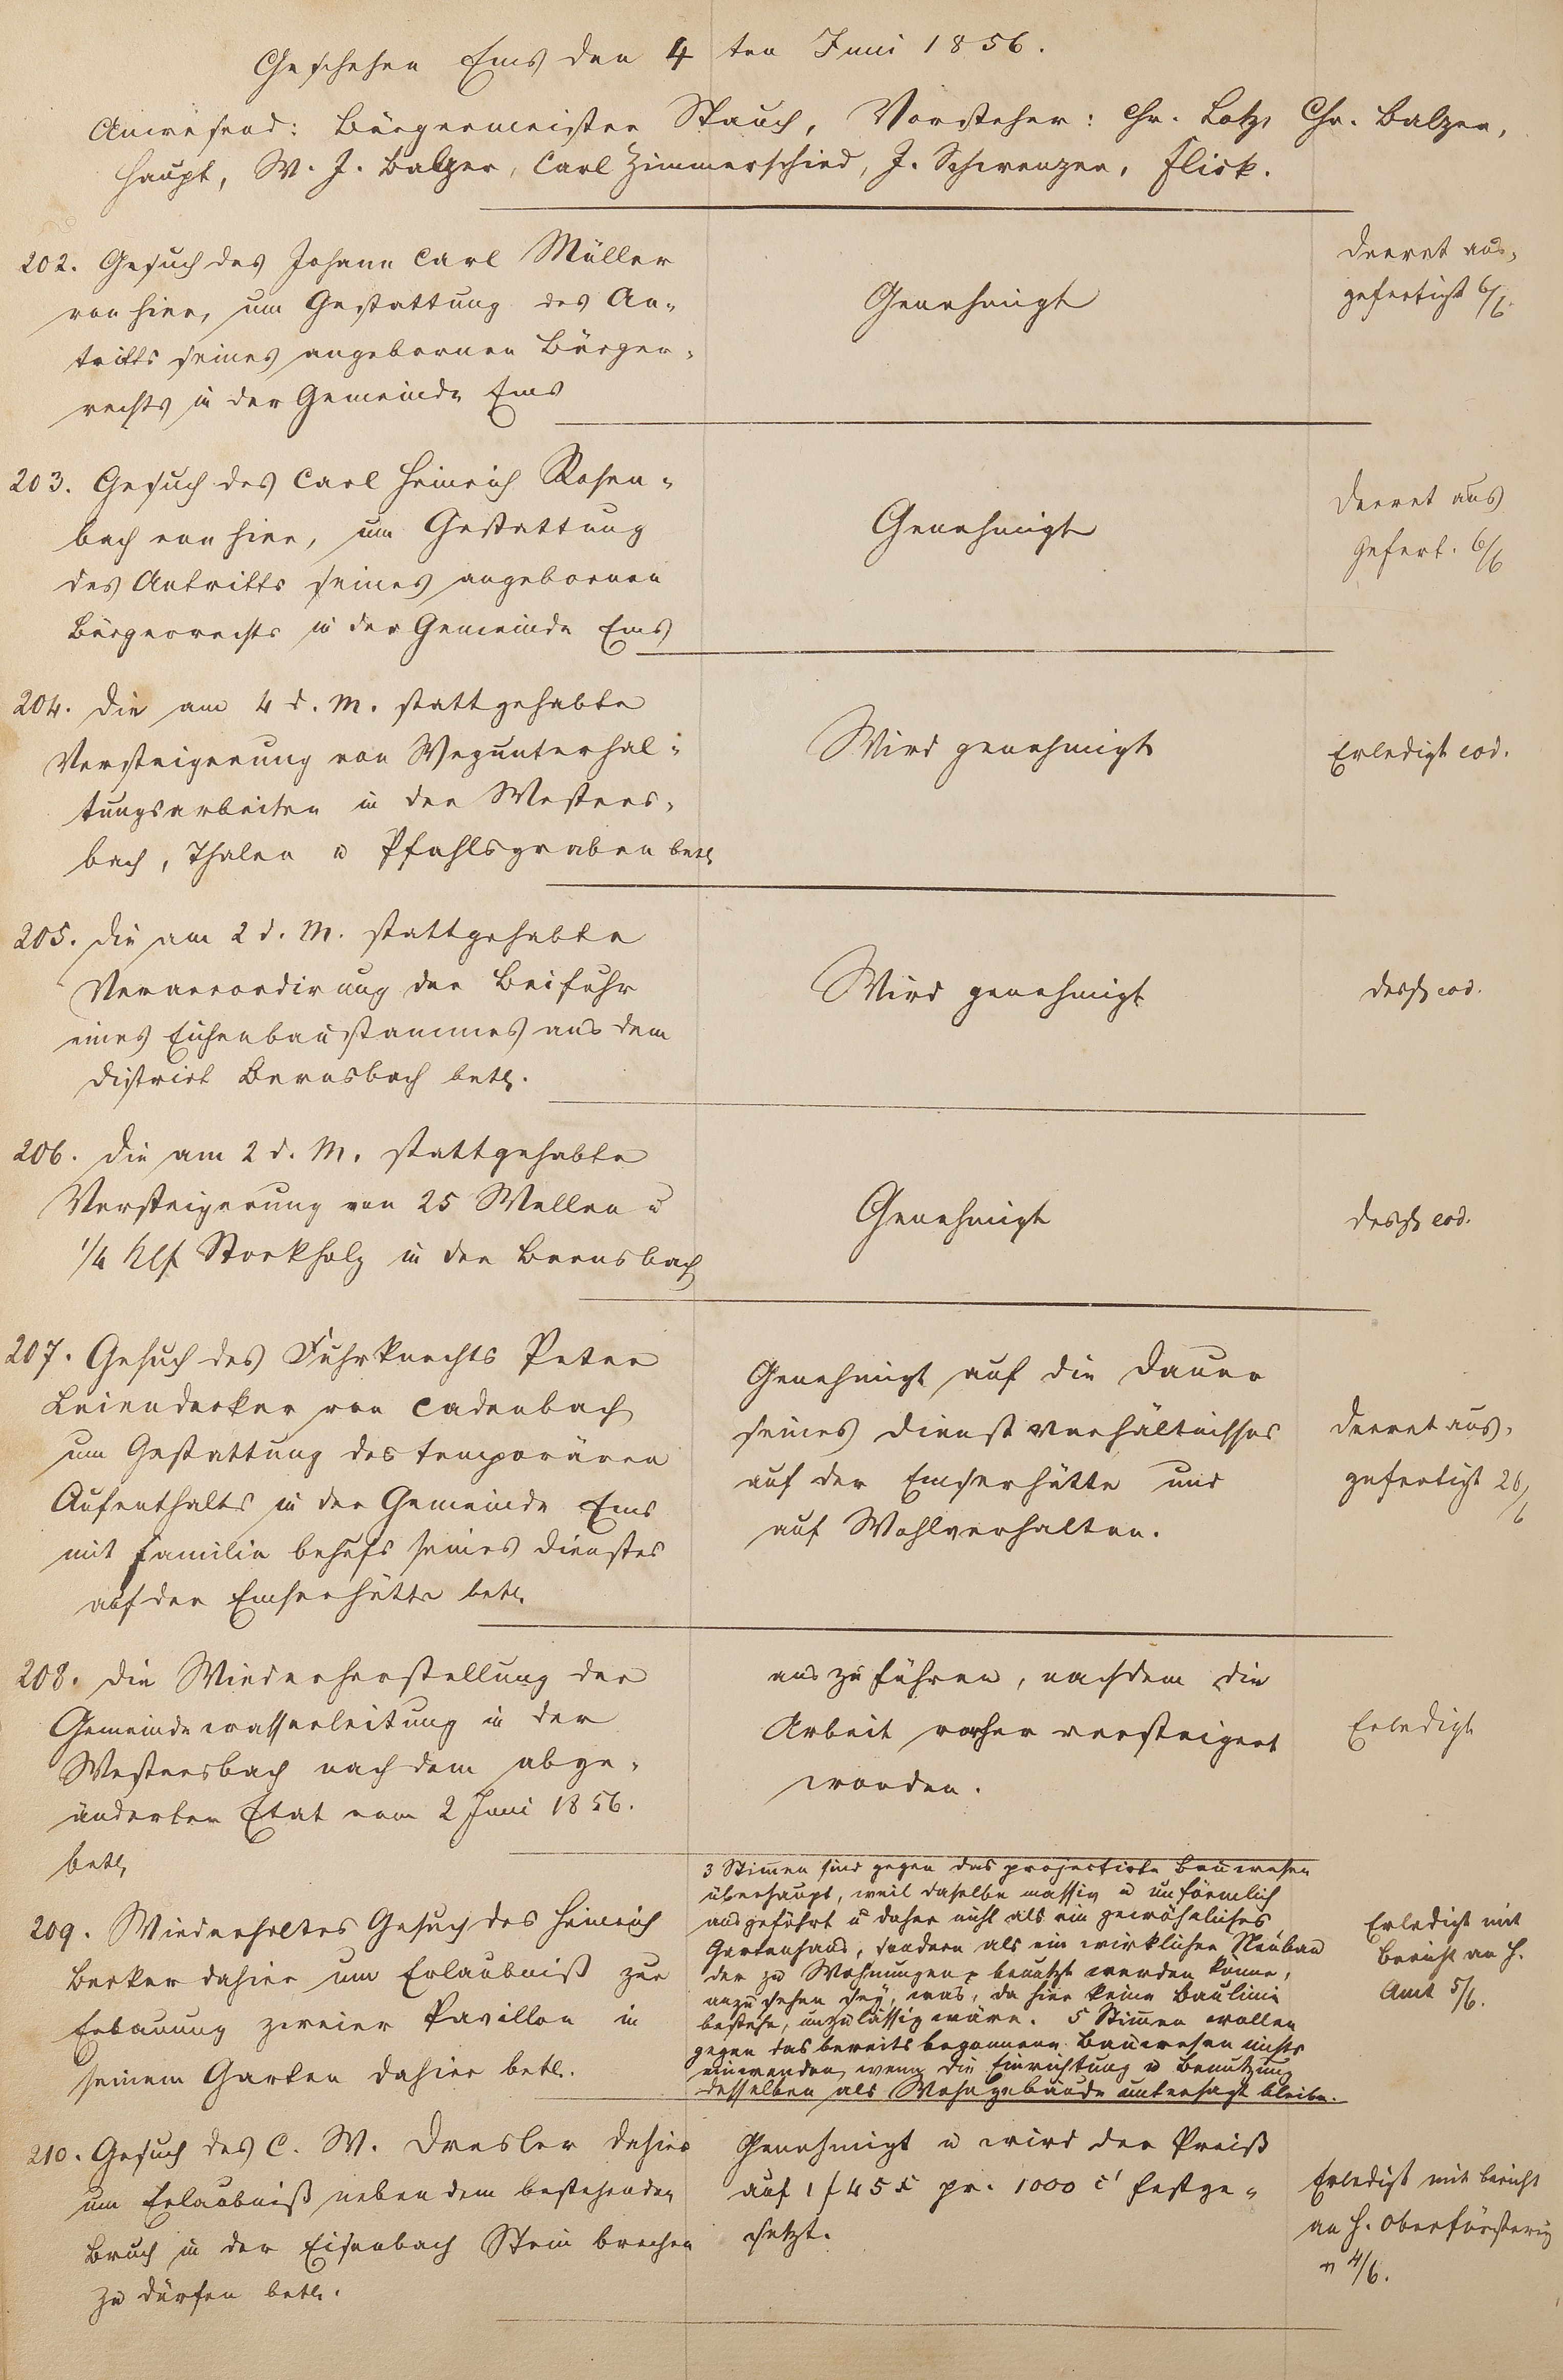 Geschehen Ems den 4ten Juni 1856.
Anwesend: Bürgermeister Stauch, Vorsteher: Chr. Lotz, Chr. Balzer,
Haupt, W. J. Balzer, Carl Zimmerschied, J. Schwenzer, Flick.
202. Gesuch des Johann Carl Müller
von hier, um Gestattung des An-
tritts seines angebornen Bürger-
rechts in der Gemeinde Ems
Genehmigt
Decret aus-
gefertigt 6/6.
203. Gesuch des Carl Heinrich Rosen-
bach von hier, um Gestattung
des Antritts seines angebornen
Bürgerrechts in der Gemeinde Ems
Genehmigt
Decret aus
gefert. 6/6
204. Die am 4 d. M. stattgehabte
Versteigerung von Wegunterhal-
tungsarbeiten in der Westers-
bach, Thalen u Pfahlsgraben betr.
Wird genehmigt
Erledigt eod.
205. Die am 2 d. M. stattgehabte
Veraccordirung der Beifuhr
eines Eichenbaustammes aus dem
District Bernsbach betr.
Wird genehmigt
desgl. eod.
206. Die am 2 d. M. stattgehabte
Versteigerung von 25 Wellen u
1/4 Klf Stockholz in der Bernsbach
Genehmigt
desgl. eod.
207. Gesuch des Fuhrknechts Peter
Leiendecker von Cadenbach
um Gestattung des temporären
Aufenthalts in der Gemeinde Ems
mit Familie behufs seines Dienstes
auf der Emserhütte betr.
Genehmigt auf die Dauer
seines Dienstverhältnisses
auf der Emserhütte und
auf Wohlverhalten.
Decret aus-
gefertigt 26/6
208. Die Wiederherstellung der
Gemeindewasserleitung in der
Westersbach nach dem abge-
änderten Etat vom 2 Juni 1856.
betr.
auszuführen, nachdem die
Arbeit vorher versteigert
worden.
Erledigt
209. Wiederholtes Gesuch des Heinrich
Becker dahier um Erlaubniß zur
Erbauung zweier Pavillon in
seinem Garten dahier betr.
3 Stimmen sind gegen das projectirte Bauwesen
überhaupt, weil daselbe massiv u unförmlich
ausgeführt u daher nicht als ein gewöhnliches
Gartenhaus, sondern als ein wirklicher Neubau
der zu Wohnungen benutzt werden könne,
anzusehen sey, was, da hier keine Baulinie
bestehe, unzulässig wäre. 5 Stimmen wollen
gegen das bereits begonnene Bauwesen nichts
einwenden, wenn die Einrichtung u Benutzung
desselben als Wohngebäude untersagt bleibe.
Erledigt mit
Bericht an H.
Amt 5/6.
210. Gesuch des C. W. Dresler dahier
um Erlaubniß neben dem bestehenden
Bruch in der Eisenbach Stein brechen
zu dürfen betr.
Genehmigt u wird der Preiß
auf 1 f 45 x pr. 1000 c' festge-
setzt.
Erledigt mit Bericht
an H. Oberförsterey
4/6.